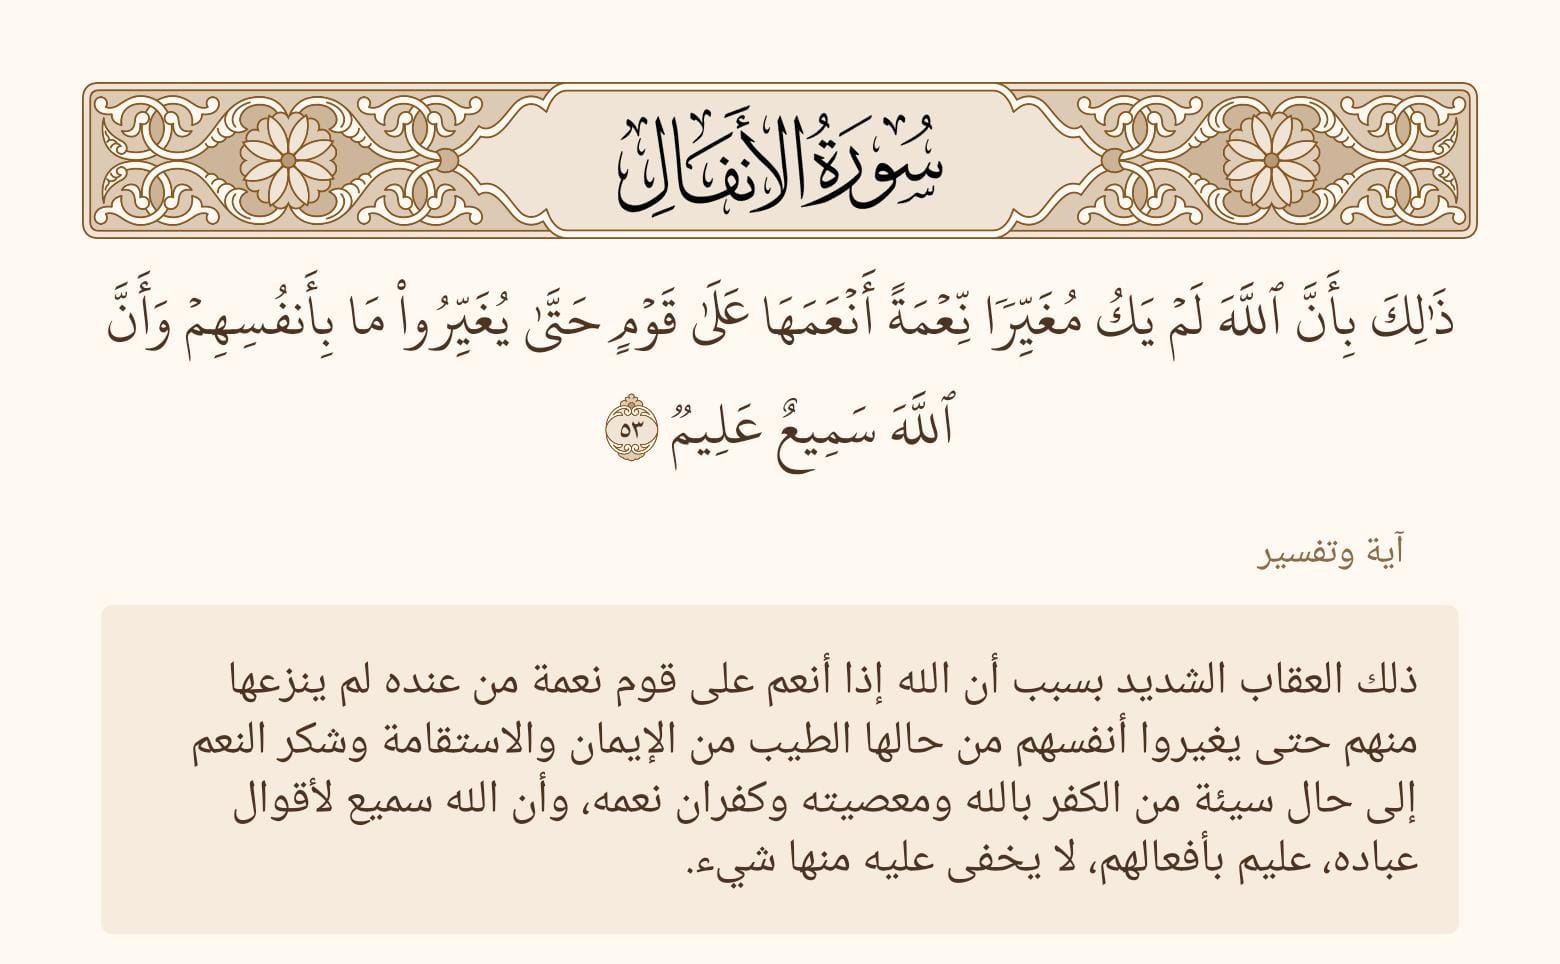 سُورَةُ الأَنفَالِ
ذَٰلِكَ بِأَنَّ ٱللَّهَ لَمۡ يَكُ مُغَيِّرٗا نِّعۡمَةً أَنۡعَمَهَا عَلَىٰ قَوۡمٍ حَتَّىٰ يُغَيِّرُواْ مَا بِأَنفُسِهِمۡ وَأَنَّ
ٱللَّهَ سَمِيعٌ عَلِيمٞ ٥٣
آية وتفسير
ذلك العقاب الشديد بسبب أن الله إذا أنعم على قوم نعمة من عنده لم ينزعها
منهم حتى يغيروا أنفسهم من حالها الطيب من الإيمان والاستقامة وشكر النعم
إلى حال سيئة من الكفر بالله ومعصيته وكفران نعمه، وأن الله سميع لأقوال
عباده، عليم بأفعالهم، لا يخفى عليه منها شيء.